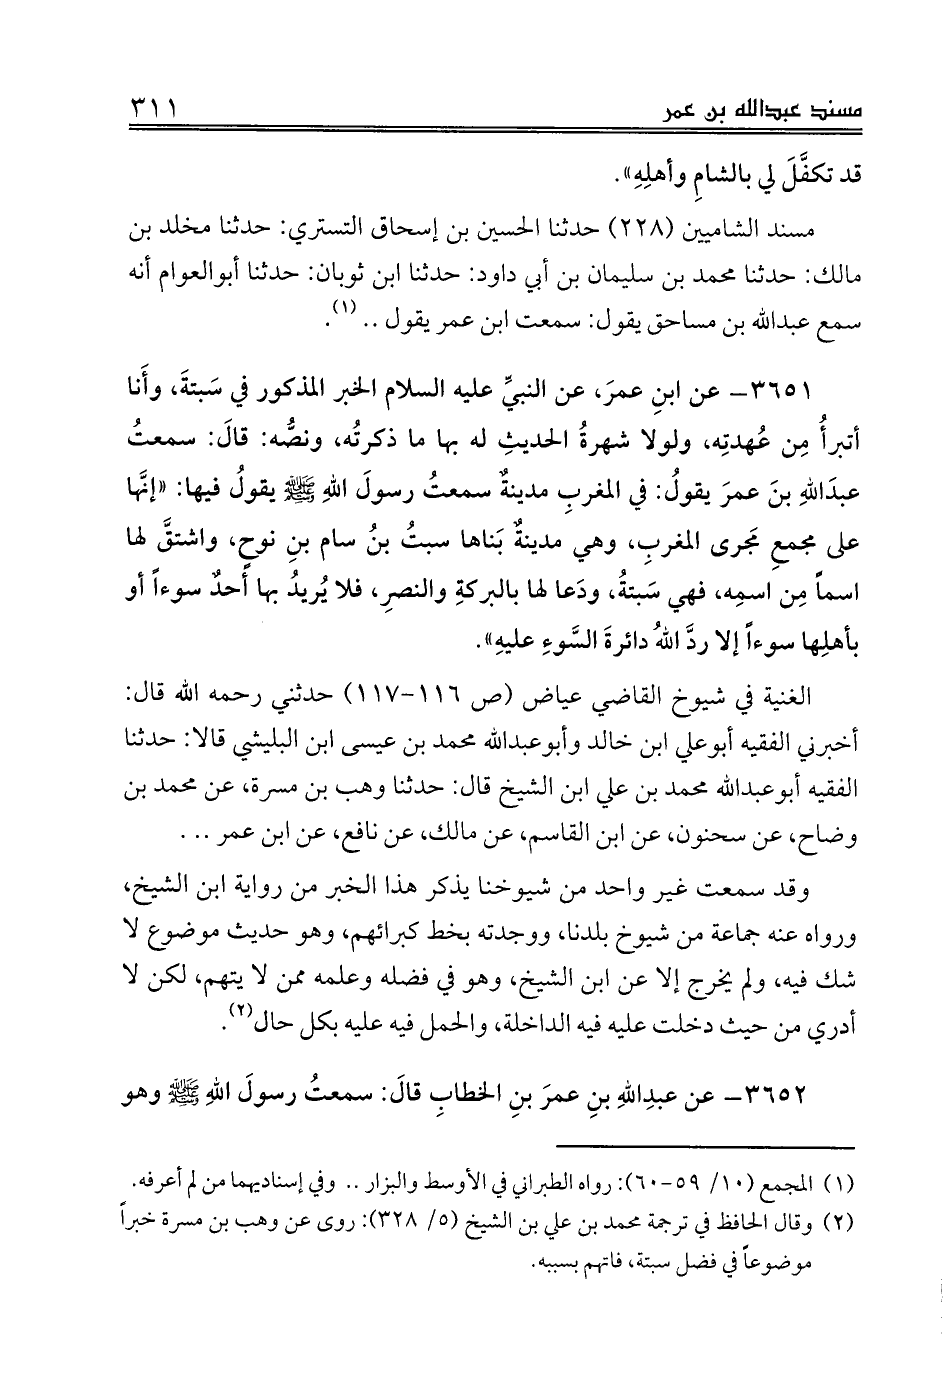 مسند عبدالله بن عمر ٣١١
قد تكفَّلَ لي بالشامِ وأهلِهِ».
مسند الشاميين (٢٢٨) حدثنا الحسين بن إسحاق التستري: حدثنا مخلد بن
مالك: حدثنا محمد بن سليمان بن أبي داود: حدثنا ابن ثوبان: حدثنا أبوالعوام أنه
سمع عبدالله بن مساحق يقول: سمعت ابن عمر يقول .. (١).
٣٦٥١- عن ابنِ عمرَ، عن النبيِّ عليه السلام الخبر المذكور في سَبتةَ، وأَنا
أتبرأُ مِن عُهدتِه، ولولا شهرةُ الحديثِ له بها ما ذكرتُه، ونصُّه: قالَ: سمعتُ
عبدَاللهِ بنَ عمرَ يقولُ: في المغربِ مدينةٌ سمعتُ رسولَ اللهِ ﷺ يقولُ فيها: «إنَّها
على مجمعِ مَجرى المغربِ، وهي مدينةٌ بَناها سبتُ بنُ سام بنِ نوحٍ، واشتقَّ لها
اسماً مِن اسمِه، فهي سَبتةُ، ودَعا لها بالبركةِ والنصرِ، فلا يُريدُ بها أَحدٌ سوءاً أو
بأهلِها سوءاً إلا ردَّ اللهُ دائرةَ السَّوءِ عليهِ».
الغنية في شيوخ القاضي عياض (ص ١١٦-١١٧) حدثني رحمه الله قال:
أخبرني الفقيه أبوعلي ابن خالد وأبوعبدالله محمد بن عيسى ابن البليشي قالا: حدثنا
الفقيه أبوعبدالله محمد بن علي ابن الشيخ قال: حدثنا وهب بن مسرة، عن محمد بن
وضاح، عن سحنون، عن ابن القاسم، عن مالك، عن نافع، عن ابن عمر .. .
وقد سمعت غير واحد من شيوخنا يذكر هذا الخبر من رواية ابن الشيخ،
ورواه عنه جماعة من شيوخ بلدنا، ووجدته بخط كبرائهم، وهو حديث موضوع لا
شك فيه، ولم يخرج إلا عن ابن الشيخ، وهو في فضله وعلمه ممن لا يتهم، لكن لا
أدري من حيث دخلت عليه فيه الداخلة، والحمل فيه عليه بكل حال(٢).
٣٦٥٢- عن عبدِاللهِ بنِ عمرَ بنِ الخطابِ قالَ: سمعتُ رسولَ اللهِ ﷺ وهو
(١) المجمع (١٠/ ٥٩-٦٠): رواه الطبراني في الأوسط والبزار .. وفي إسناديهما من لم أعرفه.
(٢) وقال الحافظ في ترجمة محمد بن علي بن الشيخ (٥/ ٣٢٨): روى عن وهب بن مسرة خبراً
موضوعاً في فضل سبتة، فاتهم بسببه.